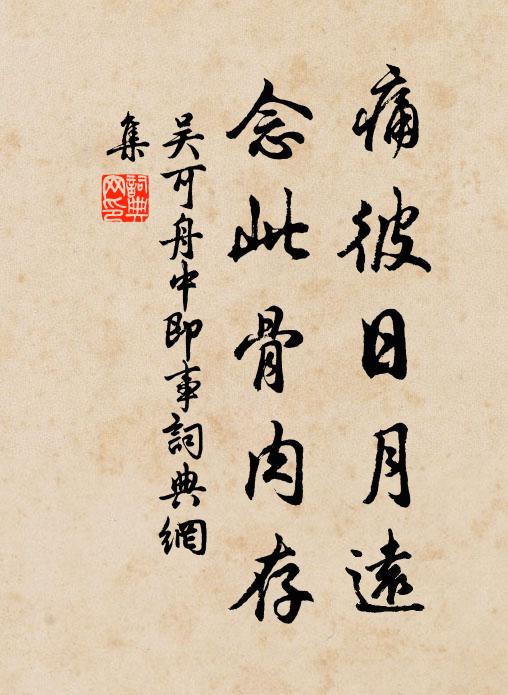 痛彼日月遠
念此骨肉存
吴可舟中即事詞典網
集
詞典
網印